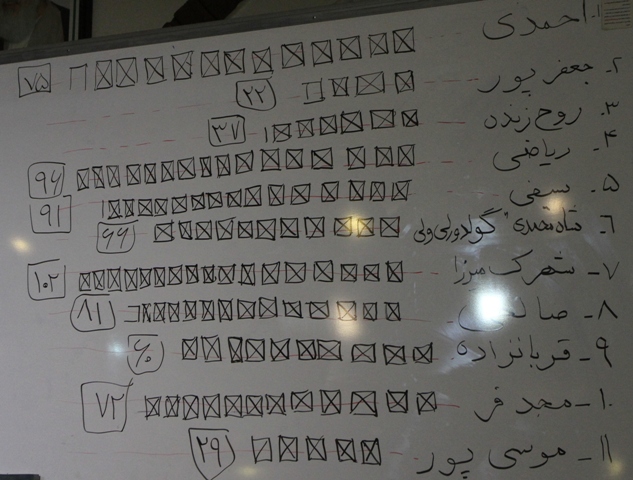 ۱- احمدی ۷۵
۲- جعفر پور ۲۲
۳- روح زنده ۳۷
۴- ریاضی ۹۶
۵- سفی ۹۱
۶- شاه محمدی ۶۶
۷- شهرک میرزا ۱۰۲
۸- صالحی ۸۱
۹- قربانزاده ۶۰
۱۰- مجد فر ۷۲
۱۱- موسی پور ۲۹